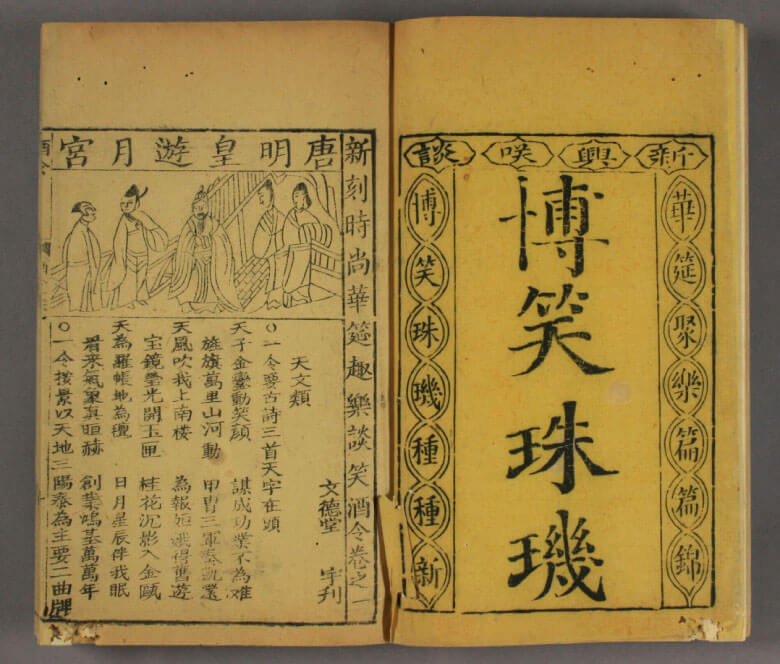 新興咲談
華筵聚樂篇篇錦
博笑珠璣
博笑珠璣種種新
新刻時尚華筵趣樂談笑酒令卷之一
唐明皇遊月宮
文德堂 刊
天文類
○一令要古詩三首天字在頭
天子金鑾動笑顏 謀成功業不為难
旌旗萬里山河動 甲冑三軍奏凱還
天風吹我上南楼 為報姮娥得舊遊
宝鏡瑩光開玉匣 桂花沉影入金甌
天為羅帳地為氊 日月星辰伴我眠
看來氣象真晅赫 創業鴻基萬萬年
○一令按景以天地三陽泰為主要二曲牌